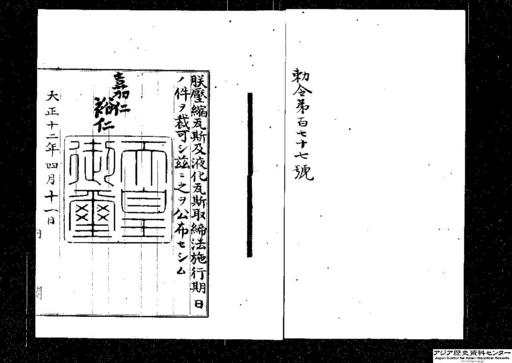 勅令第百七十七號
朕壓縮瓦斯及液化瓦斯取締法施行期日
ノ件ヲ裁可シ茲ニ之ヲ公布セシム
嘉仁
裕仁
天皇
御璽
大正十二年四月十一日
内閣
アジア歴史資料センター
Japan Center for Asian Historical Records